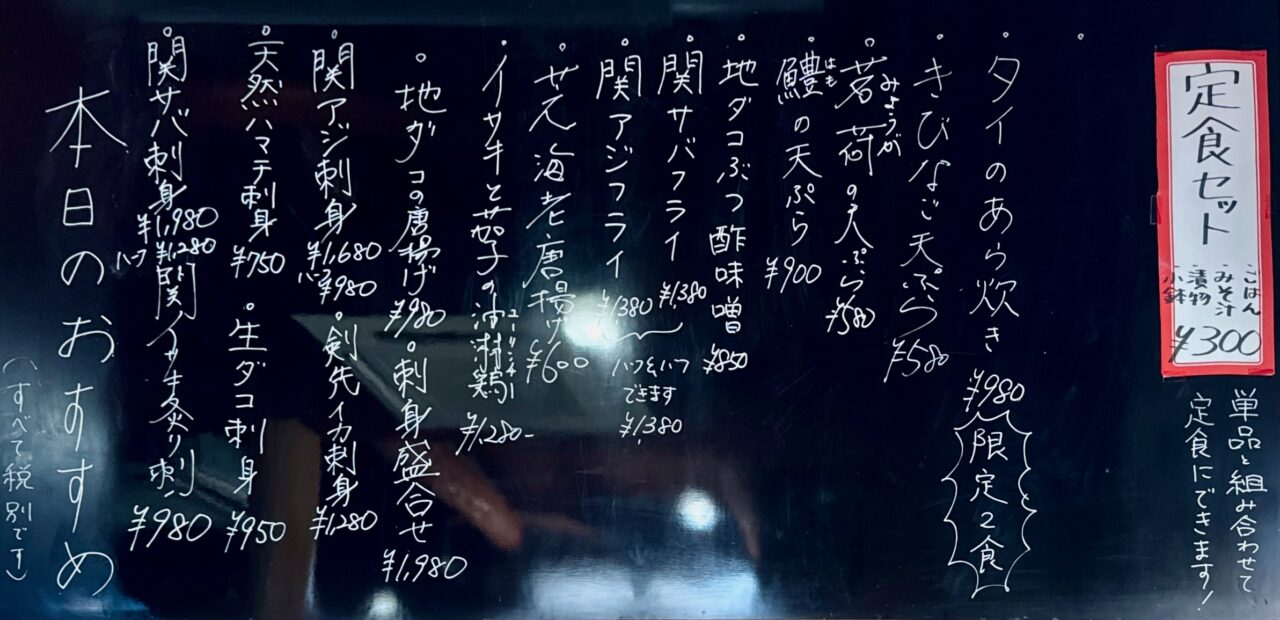 定食セット
ごはん
みそ汁
漬物
小鉢
¥300
単品と組み合わせて
定食にできます!
タイのあら炊き ¥980
限定2食
きびなご天ぷら ¥580
みょうが
茗荷の天ぷら ¥580
はも
鱧の天ぷら ¥900
地ダコぶつ酢味噌 ¥850
関サバフライ ¥1,380
関アジフライ ¥1,380
ハーフ&ハーフ
できます
¥1,380
芝海老唐揚げ ¥600
イサキと茄子の油淋鶏 ¥1,280-
ユーリンチー
地ダコの唐揚げ ¥980
・刺身盛合せ ¥1,980
関アジ刺身 ¥1,680
ハーフ ¥980
・剣先イカ刺身 ¥1,280
天然ハマチ刺身 ¥750
・生ダコ刺身 ¥950
関サバ刺身 ¥1,980
ハーフ ¥1,280
関イサキ炙り刺 ¥980
本日のおすすめ
(すべて税別です)